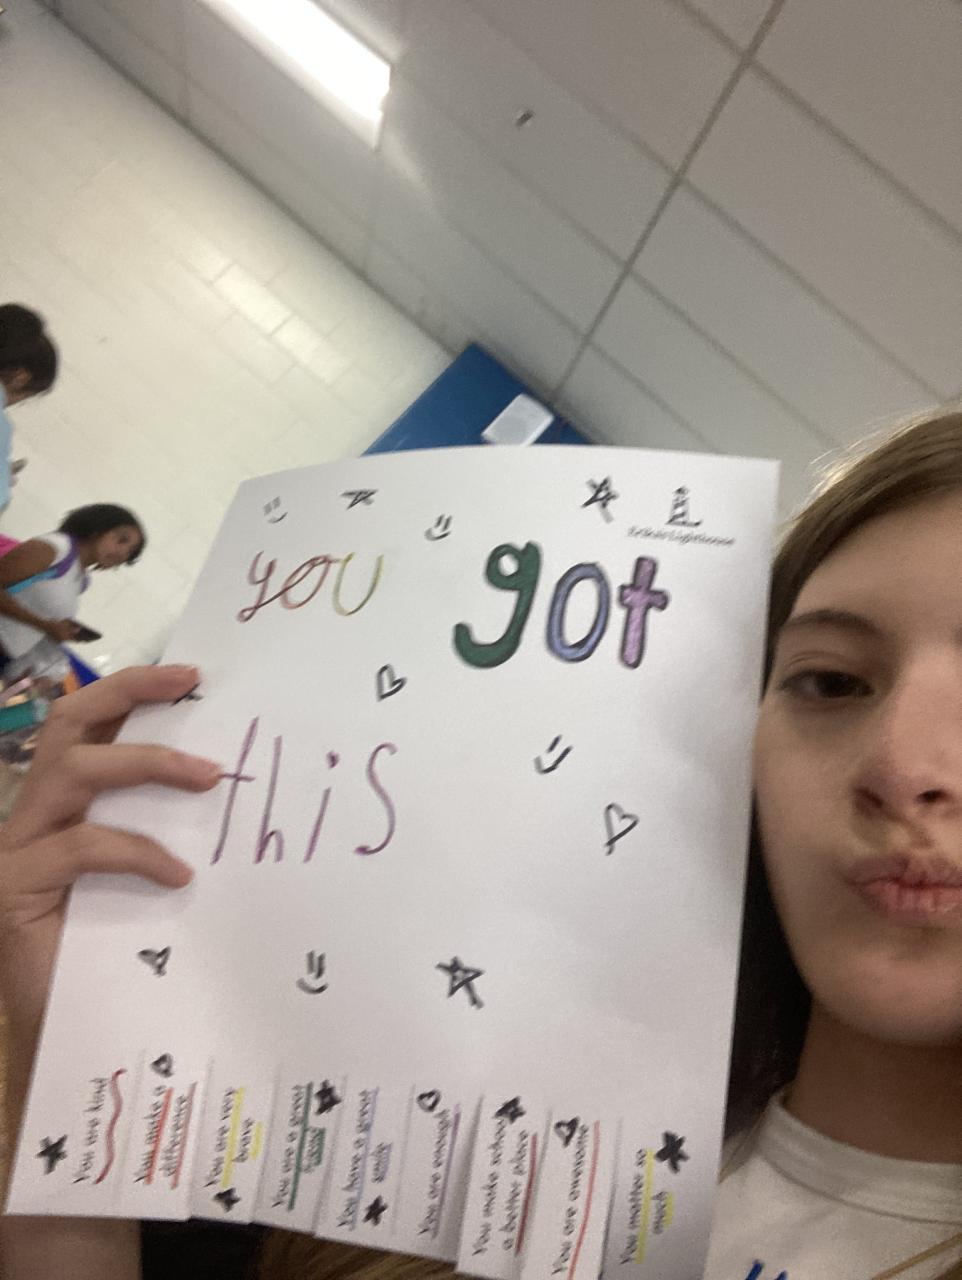 you got
this
You are kind
You make a
difference
You are very
brave
You are a great
friend
You have a great
smile
You are enough
You make school
a better place
You are awesome
You matter so
much